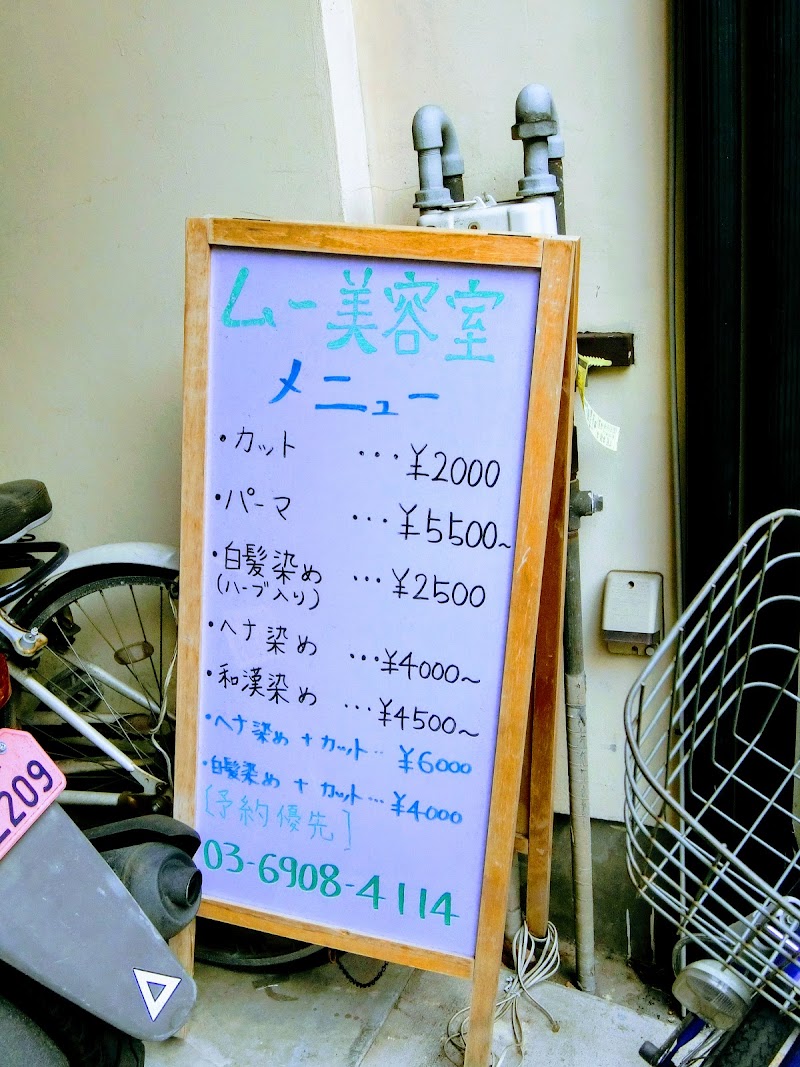 ムー美容室
メニュー
・カット …¥2000
・パーマ …¥5500~
・白髪染め …¥2500
(ハーブ入り)
・ヘナ染め …¥4000~
・和漢染め …¥4500~
・ヘナ染め + カット… ¥6000
・白髪染め + カット…¥4000
[予約優先]
03-6908-4114
209